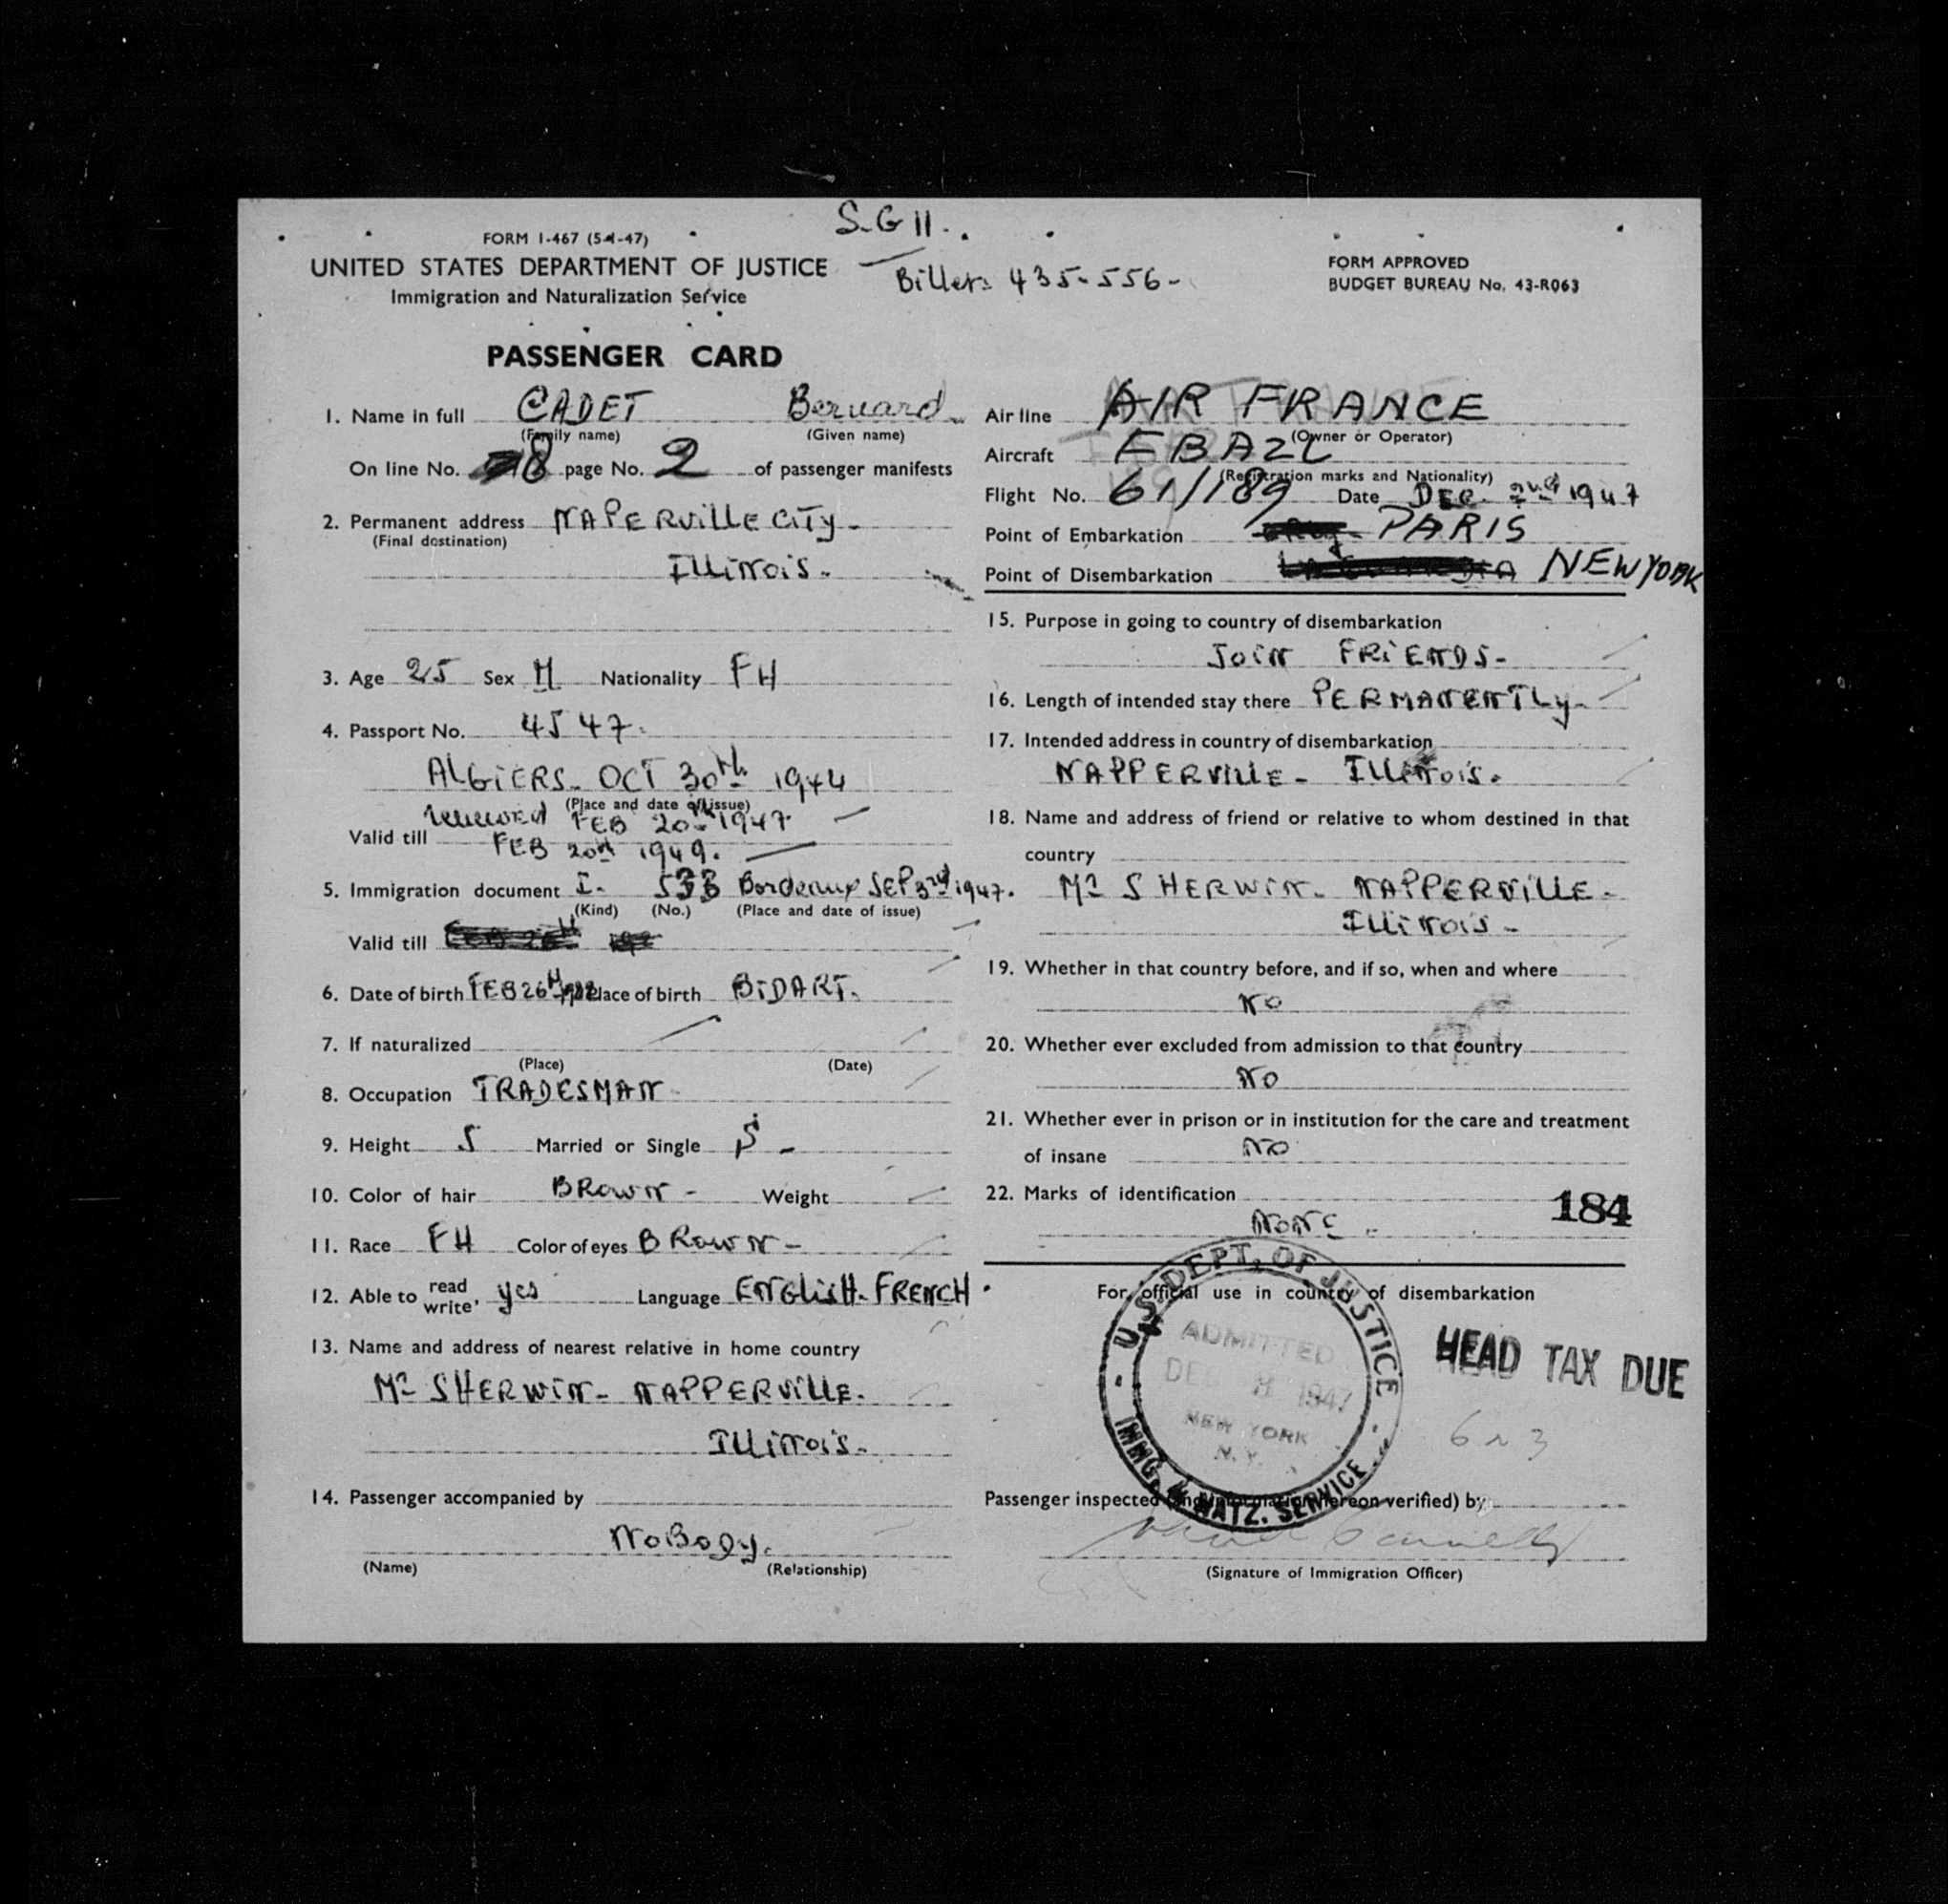 S.G 11.
FORM I-467 (5-1-47)
UNITED STATES DEPARTMENT OF JUSTICE
Immigration and Naturalization Service
Billet: 435-556-
FORM APPROVED
BUDGET BUREAU No. 43-R063
PASSENGER CARD
1. Name in full CADET Bernard
(Family name) (Given name)
On line No. 8 page No. 2 of passenger manifests
2. Permanent address NAPERVILLE CITY-
(Final destination)
ILLINOIS.
3. Age 25 Sex M Nationality FH
4. Passport No. 4547.
ALGIERS. OCT 30th 1944
(Place and date of issue)
renewed FEB 20th 1947
Valid till FEB 20th 1949.
5. Immigration document I. 533 Bordeaux SEP 3rd 1947.
(Kind) (No.) (Place and date of issue)
Valid till
6. Date of birth FEB 26th 1922 Place of birth BIDART.
7. If naturalized
(Place) (Date)
8. Occupation TRADESMAN
9. Height 5 Married or Single S -
10. Color of hair BROWN - Weight
11. Race FH Color of eyes BROWN -
12. Able to read write, yes Language ENGLISH. FRENCH.
13. Name and address of nearest relative in home country
Mr SHERWIN- NAPPERVILLE.
ILLINOIS.
14. Passenger accompanied by
NOBODY.
(Name) (Relationship)
Air line AIR FRANCE
(Owner or Operator)
Aircraft FBAZL
(Registration marks and Nationality)
Flight No. 61/189 Date DEC. 2nd 1947
Point of Embarkation PARIS
Point of Disembarkation NEW YORK
15. Purpose in going to country of disembarkation
JOIN FRIENDS-
16. Length of intended stay there PERMANENTLY-
17. Intended address in country of disembarkation
NAPPERVILLE- ILLINOIS.
18. Name and address of friend or relative to whom destined in that
country
Mr SHERWIN- NAPPERVILLE-
ILLINOIS-
19. Whether in that country before, and if so, when and where
NO
20. Whether ever excluded from admission to that country
NO
21. Whether ever in prison or in institution for the care and treatment
of insane NO
22. Marks of identification
NONE
184
For official use in country of disembarkation
U.S. DEPT. OF JUSTICE
ADMITTED
DEC 1947
NEW YORK
N.Y.
IMMG. & NATZ. SERVICE
HEAD TAX DUE
Passenger inspected (and information hereon verified) by
(Signature of Immigration Officer)